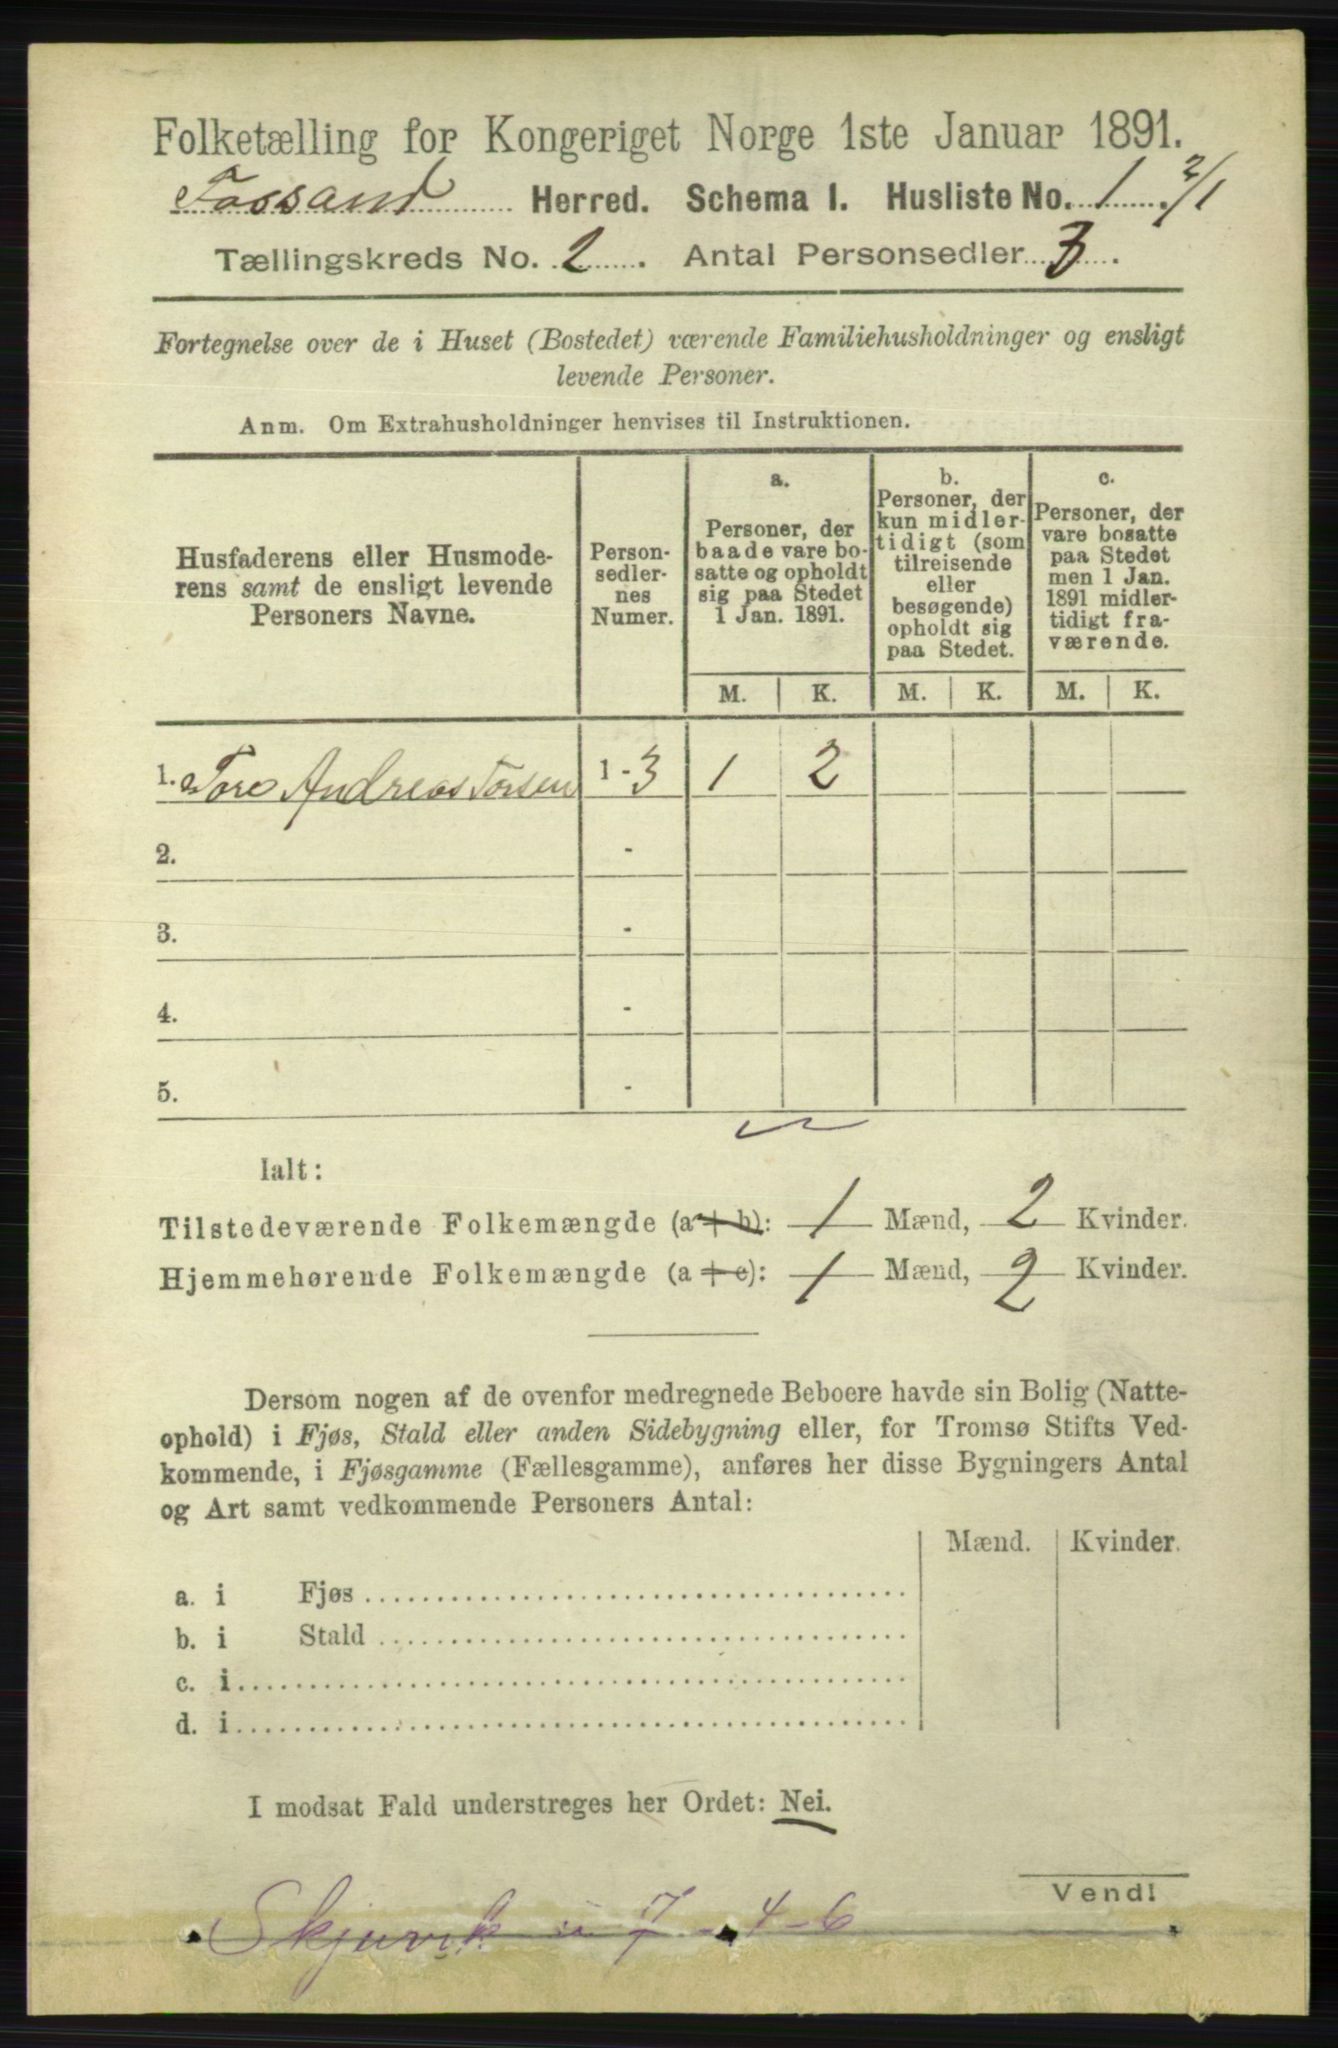 Folketælling for Kongeriget Norge 1ste Januar 1891.
Fossand Herred. Schema I. Husliste No. 1. 2/1
Tællingskreds No. 2. Antal Personsedler 3.
Fortegnelse over de i Huset (Bostedet) værende Familiehusholdninger og ensligt
levende Personer.
Anm. Om Extrahusholdninger henvises til Instruktionen.
Husfaderens eller Husmode-
rens samt de ensligt levende
Personers Navne.
Person-
sedler-
nes
Numer.
a.
Personer, der
baade vare bo-
satte og opholdt
sig paa Stedet
1 Jan. 1891.
b.
Personer, der
kun midler-
tidigt (som
tilreisende
eller
besøgende)
opholdt sig
paa Stedet.
c.
Personer, der
vare bosatte
paa Stedet
men 1 Jan.
1891 midler-
tidigt fra-
værende.
M. K. M. K. M. K.
1. Tore Andreas Torsen 1 - 3 1 2
2. -
3. -
4. -
5. -
Ialt:
Tilstedeværende Folkemængde (a + b): 1 Mænd, 2 Kvinder.
Hjemmehørende Folkemængde (a + c): 1 Mænd, 2 Kvinder.
Dersom nogen af de ovenfor medregnede Beboere havde sin Bolig (Natte-
ophold) i Fjøs, Stald eller anden Sidebygning eller, for Tromsø Stifts Ved-
kommende, i Fjøsgamme (Fællesgamme), anføres her disse Bygningers Antal
og Art samt vedkommende Personers Antal:
Mænd. Kvinder.
a. i Fjøs
b. i Stald
c. i
d. i
I modsat Fald understreges her Ordet: Nei.
Vend!
Skjurvik 7 - 4 - 6